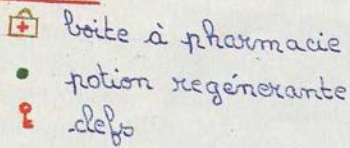 boite à pharmacie
potion regénerante
clefs